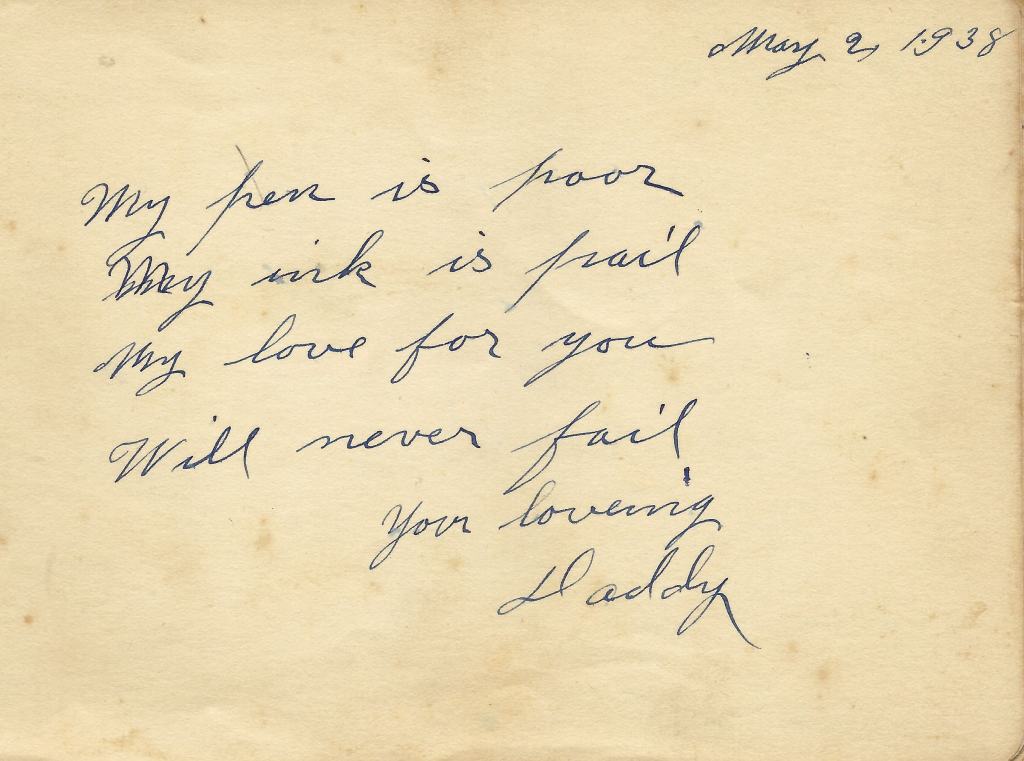 May 2, 1938
My pen is poor
My ink is pail
My love for you
Will never fail
Your loveing
Daddy